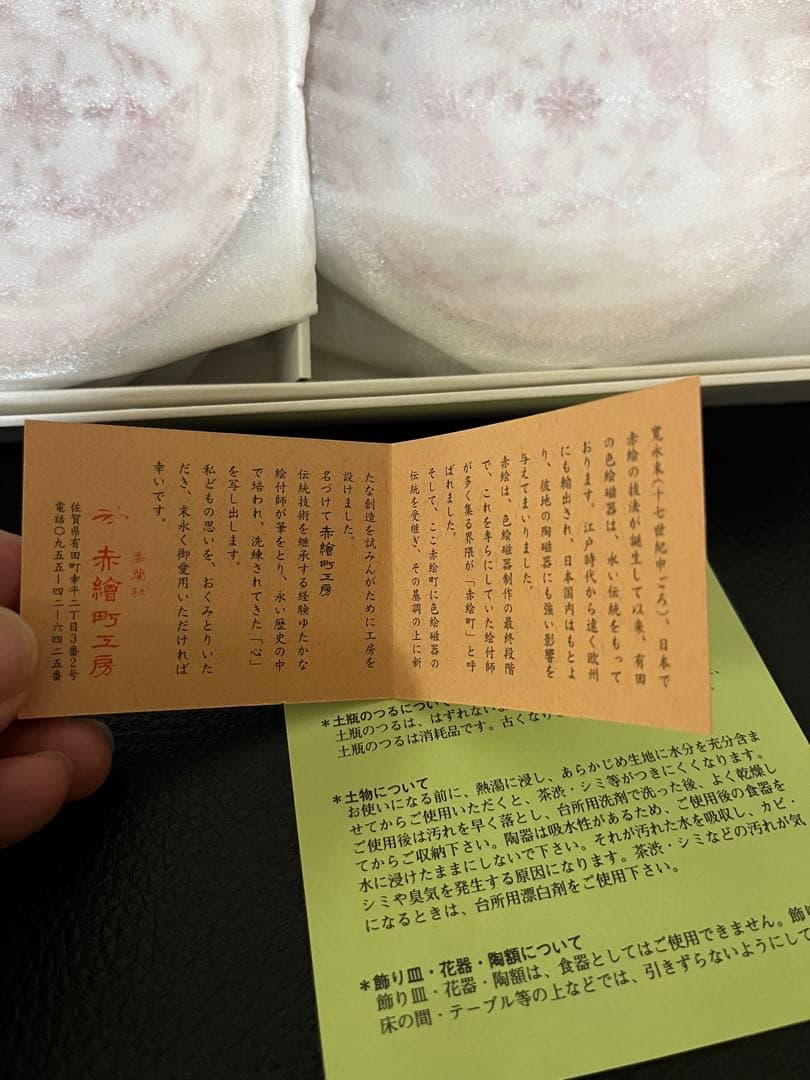 寛永末(十七世紀中ごろ)、日本で
赤絵の技法が誕生して以来、有田
の色絵磁器は、永い伝統をもって
おります。江戸時代から遠く欧州
にも輸出され、日本国内はもとよ
り、彼地の陶磁器にも強い影響を
与えてまいりました。
赤絵は、色絵磁器制作の最終段階
で、これを専らにしていた絵付師
が多く集る界隈が「赤絵町」と呼
ばれました。
そして、ここ赤絵町に色絵磁器の
伝統を受継ぎ、その基調の上に新
たな創造を試みんがために工房を
設けました。
名づけて赤繪町工房
伝統技術を継承する経験ゆたかな
絵付師が筆をとり、永い歴史の中
で培われ、洗練されてきた「心」
を写し出します。
私どもの思いを、おくみとりいた
だき、末永く御愛用いただければ
幸いです。
香蘭社
赤繪町工房
佐賀県有田町幸平二丁目3番2号
電話〇九五五―四二―六四二五番
*土瓶のつるについて
土瓶のつるは、はずれないよ
土瓶のつるは消耗品です。古くなり
*土物について
お使いになる前に、熱湯に浸し、あらかじめ生地に水分を充分含ま
せてからご使用いただくと、茶渋・シミ等がつきにくくなります。
ご使用後は汚れを早く落とし、台所用洗剤で洗った後、よく乾燥し
てからご収納下さい。陶器は吸水性があるため、ご使用後の食器を
水に浸けたままにしないで下さい。それが汚れた水を吸収し、カビ・
シミや臭気を発生する原因になります。茶渋・シミなどの汚れが気
になるときは、台所用漂白剤をご使用下さい。
*飾り皿・花器・陶額について
飾り皿・花器・陶額は、食器としてはご使用できません。飾り
床の間・テーブル等の上などでは、引きずらないようにして